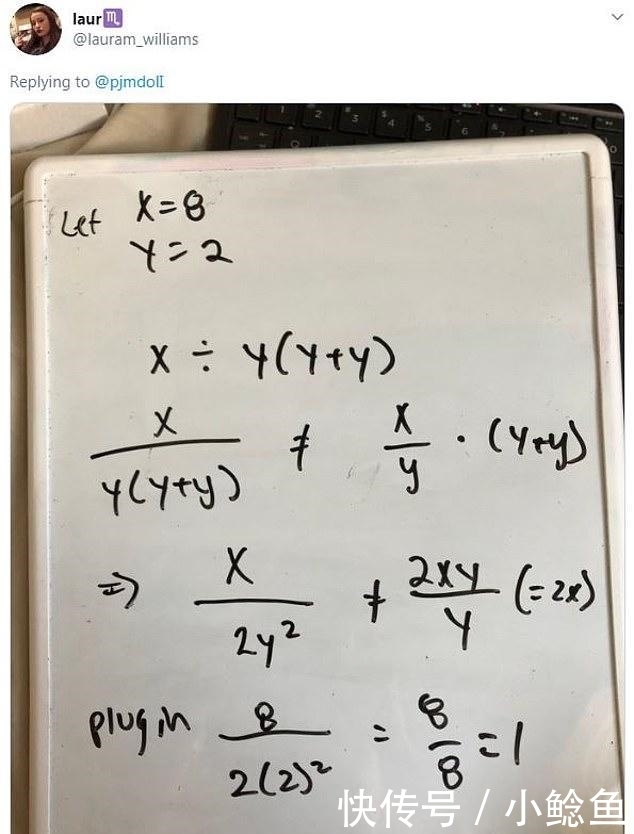 laur♏
@lauram_williams
Replying to @pjmdolI
Let X=8
Y=2
X ÷ Y(Y+Y)
X/Y(Y+Y) ≠ X/Y · (Y+Y)
=> X/2Y² ≠ 2XY/Y (=2x)
plug in 8/2(2)² = 8/8 = 1
快传号 / 小鲶鱼